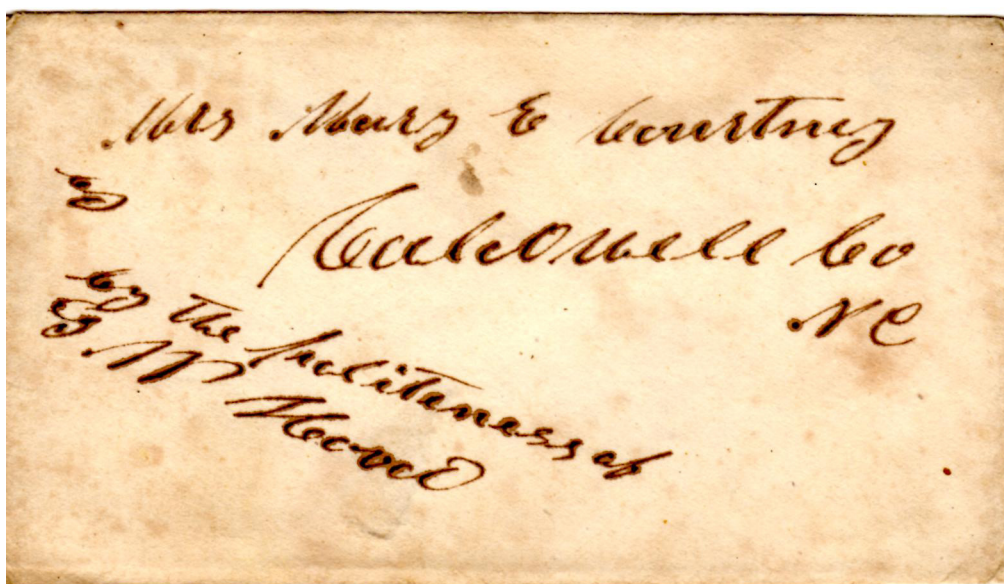 Mrs Mary E Courtney
Caldwell Co
NC
by the politeness of
G W